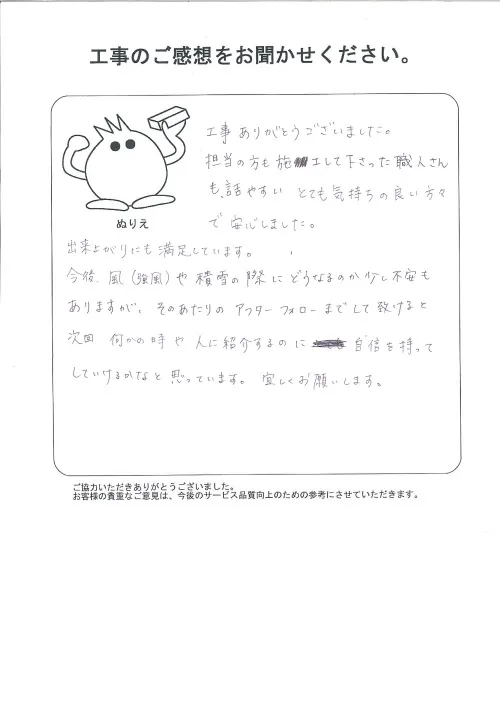 工事のご感想をお聞かせください。
工事ありがとうございました。
担当の方も施工して下さった職人さん
も、話やすい とても気持ちの良い方々
で安心しました。
ぬりえ
出来上がりにも満足しています。
今後、風(強風)や積雪の際にどうなるのか少し不安も
ありますが、そのあたりのアフターフォローまでして頂けると
次回 何かの時や人に紹介するのに 自信を持って
していけるかなと思っています。宜しくお願いします。
ご協力いただきありがとうございました。
お客様の貴重なご意見は、今後のサービス品質向上のための参考にさせていただきます。